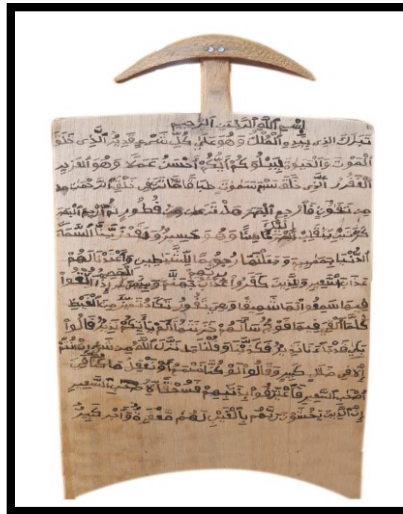 بسم الله الرحمن الرحيم
تبرك الذى بيده الملك وهو على كل شىء قدير الذى خلق
الموت والحيوة ليبلوكم أيكم أحسن عملا وهو العزيز
الغفور الذى خلق سبع سموت طباقا ما ترى فى خلق الرحمن من
من تفوت فارجع البصر هل ترى من فطور ثم ارجع البصر
كرتين ينقلب إليك البصر خاسئا وهو حسير ولقد زينا السماء
الدنيا بمصبيح وجعلنها رجوما للشيطين وأعتدنا لهم
عذاب السعير وللذين كفروا بربهم عذاب جهنم وبئس المصير إذا ألقوا
فيها سمعوا لها شهيقا وهى تفور تكاد تميز من الغيظ
كلما ألقى فيها فوج سألهم خزنتها ألم يأتكم نذير قالوا
بلى قد جاءنا نذير فكذبنا وقلنا ما نزل الله من شىء إن أنتم
إلا فى ضلل كبير وقالوا لو كنا نسمع أو نعقل ما كنا فى
أصحب السعير فاعترفوا بذنبهم فسحقا لأصحب السعير
إن الذين يخشون ربهم بالغيب لهم مغفرة وأجر كبير